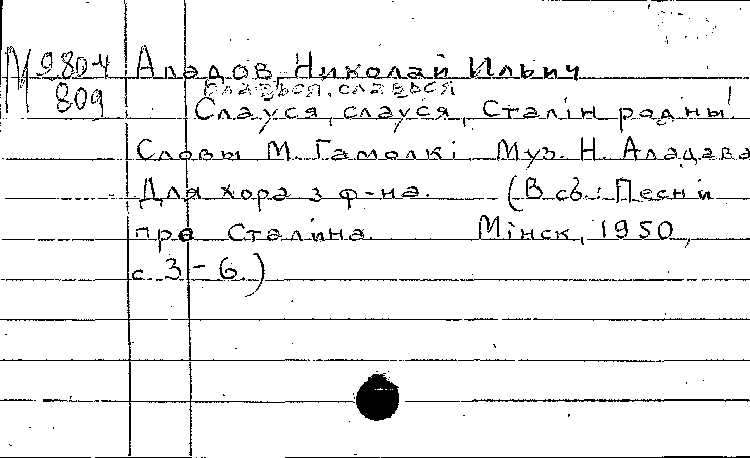 М 980-4
809
Аладов, Николай Ильич
Славься, славься
Слауся, слауся, Сталін родны!
Словы М. Гамолкі Муз. Н. Аладава
Для хора з ф-на. (В сб.: Песни
пра Сталина. Мінск, 1950,
с. 3-6)